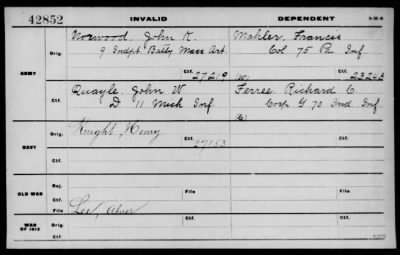 42852 INVALID DEPENDENT 3-16-6
Norwood, John K. Mahler, Francis
Orig. 9 Indpt. Batty Mass Art. Col 75 Pa Inf
ARMY Ctf. 27219 (W) Ctf. 23243
Quayle, John W. Ferree, Richard C.
Ctf. D 11 Mich Inf. Corp G 70 Ind Inf
Knight, Henry
Orig. Ctf. 27153 Ctf.
NAVY
Ctf.
Rej.
OLD WAR Ctf. File File
Lee,
Orig. Ctf. Ctf.
WAR OF 1812
Ctf.